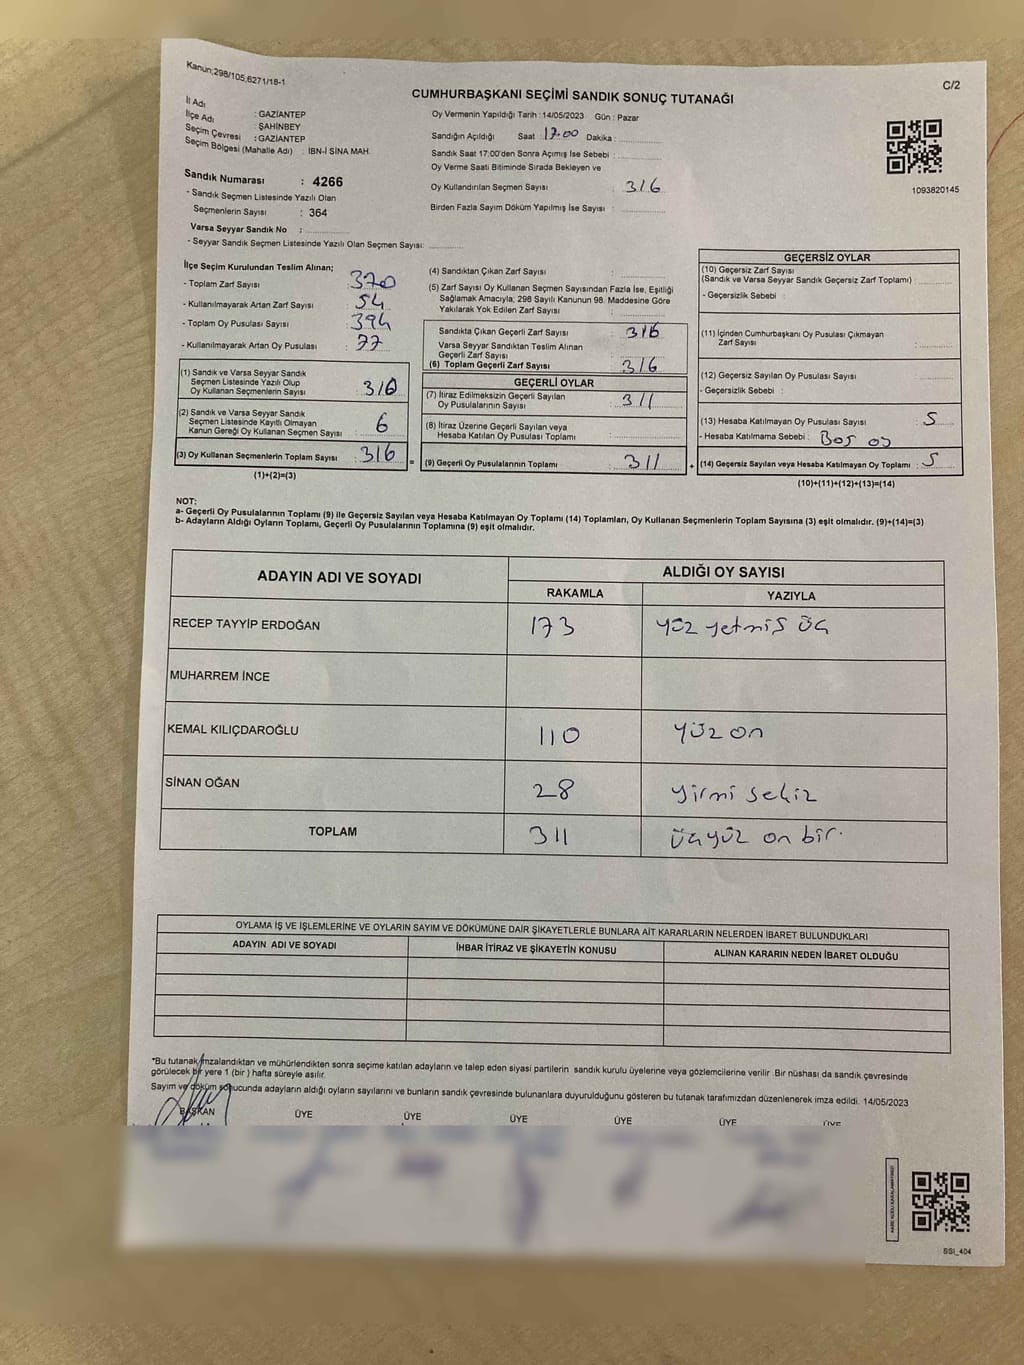 Kanun;298/105,6271/18-1
C/2
CUMHURBAŞKANI SEÇİMİ SANDIK SONUÇ TUTANAĞI
İl Adı : GAZİANTEP
İlçe Adı : ŞAHİNBEY
Seçim Çevresi : GAZİANTEP
Seçim Bölgesi (Mahalle Adı) : İBN-İ SİNA MAH.
Oy Vermenin Yapıldığı Tarih : 14/05/2023 Gün : Pazar
Sandığın Açıldığı Saat : 17.00 Dakika :
Sandık Saat 17:00'den Sonra Açımış İse Sebebi :
Oy Verme Saati Bitiminde Sırada Bekleyen ve
Oy Kullandırılan Seçmen Sayısı : 316
Birden Fazla Sayım Döküm Yapılmış İse Sayısı :
1093820145
Sandık Numarası : 4266
- Sandık Seçmen Listesinde Yazılı Olan
Seçmenlerin Sayısı : 364
Varsa Seyyar Sandık No :
- Seyyar Sandık Seçmen Listesinde Yazılı Olan Seçmen Sayısı:
İlçe Seçim Kurulundan Teslim Alınan;
- Toplam Zarf Sayısı : 370
- Kullanılmayarak Artan Zarf Sayısı : 54
- Toplam Oy Pusulası Sayısı : 394
- Kullanılmayarak Artan Oy Pusulası : 77
(1) Sandık ve Varsa Seyyar Sandık
Seçmen Listesinde Yazılı Olup
Oy Kullanan Seçmenlerin Sayısı : 310
(2) Sandık ve Varsa Seyyar Sandık
Seçmen Listesinde Kayıtlı Olmayan
Kanun Gereği Oy Kullanan Seçmen Sayısı : 6
(3) Oy Kullanan Seçmenlerin Toplam Sayısı : 316
(1)+(2)=(3)
(4) Sandıktan Çıkan Zarf Sayısı :
(5) Zarf Sayısı Oy Kullanan Seçmen Sayısından Fazla İse, Eşitliği
Sağlamak Amacıyla; 298 Sayılı Kanunun 98. Maddesine Göre
Yakılarak Yok Edilen Zarf Sayısı :
Sandıkta Çıkan Geçerli Zarf Sayısı : 316
Varsa Seyyar Sandıktan Teslim Alınan
Geçerli Zarf Sayısı :
(6) Toplam Geçerli Zarf Sayısı : 316
GEÇERLİ OYLAR
(7) İtiraz Edilmeksizin Geçerli Sayılan
Oy Pusulalarının Sayısı : 311
(8) İtiraz Üzerine Geçerli Sayılan veya
Hesaba Katılan Oy Pusulası Toplamı :
= (9) Geçerli Oy Pusulalarının Toplamı : 311 +
GEÇERSİZ OYLAR
(10) Geçersiz Zarf Sayısı
(Sandık ve Varsa Seyyar Sandık Geçersiz Zarf Toplamı) :
- Geçersizlik Sebebi :
(11) İçinden Cumhurbaşkanı Oy Pusulası Çıkmayan
Zarf Sayısı :
(12) Geçersiz Sayılan Oy Pusulası Sayısı :
- Geçersizlik Sebebi :
(13) Hesaba Katılmayan Oy Pusulası Sayısı : 5
- Hesaba Katılmama Sebebi : Boş oy
(14) Geçersiz Sayılan veya Hesaba Katılmayan Oy Toplamı : 5
(10)+(11)+(12)+(13)=(14)
NOT:
a- Geçerli Oy Pusulalarının Toplamı (9) ile Geçersiz Sayılan veya Hesaba Katılmayan Oy Toplamı (14) Toplamları, Oy Kullanan Seçmenlerin Toplam Sayısına (3) eşit olmalıdır. (9)+(14)=(3)
b- Adayların Aldığı Oyların Toplamı, Geçerli Oy Pusulalarının Toplamına (9) eşit olmalıdır.
ADAYIN ADI VE SOYADI ALDIĞI OY SAYISI
RAKAMLA YAZIYLA
RECEP TAYYİP ERDOĞAN 173 yüz yetmiş üç
MUHARREM İNCE
KEMAL KILIÇDAROĞLU 110 yüz on
SİNAN OĞAN 28 yirmi sekiz
TOPLAM 311 üçyüz on bir.
OYLAMA İŞ VE İŞLEMLERİNE VE OYLARIN SAYIM VE DÖKÜMÜNE DAİR ŞİKAYETLERLE BUNLARA AİT KARARLARIN NELERDEN İBARET BULUNDUKLARI
ADAYIN ADI VE SOYADI İHBAR İTİRAZ VE ŞİKAYETİN KONUSU ALINAN KARARIN NEDEN İBARET OLDUĞU
*Bu tutanak imzalandıktan ve mühürlendikten sonra seçime katılan adayların ve talep eden siyasi partilerin sandık kurulu üyelerine veya gözlemcilerine verilir .Bir nüshası da sandık çevresinde
görülecek bir yere 1 (bir ) hafta süreyle asılır.
Sayım ve döküm sonucunda adayların aldığı oyların sayılarını ve bunların sandık çevresinde bulunanlara duyurulduğunu gösteren bu tutanak tarafımızdan düzenlenerek imza edildi. 14/05/2023
BAŞKAN ÜYE ÜYE ÜYE ÜYE ÜYE ÜYE
SSI_404